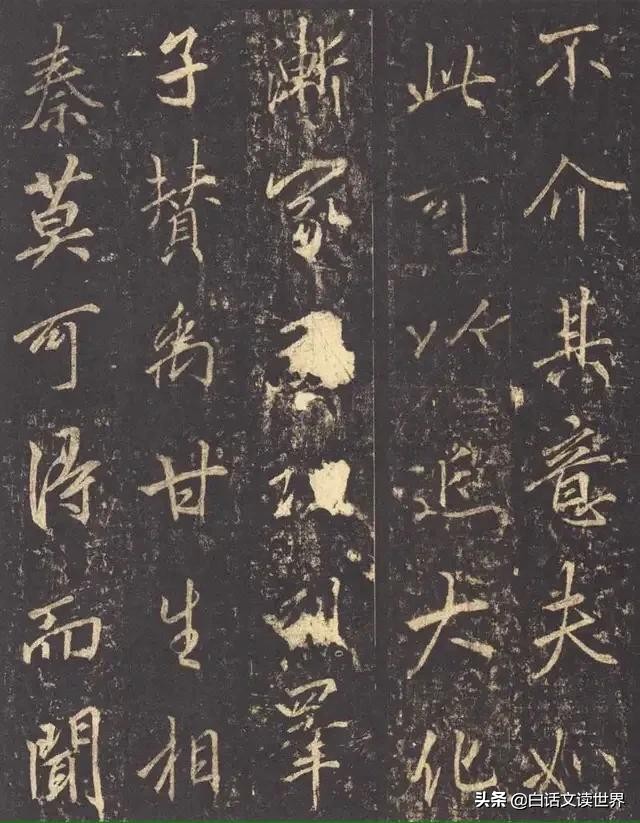 不介其意夫如
此可以追大化
漸家睪
子贊禹甘生相
秦莫可得而聞
头条 @白话文读世界